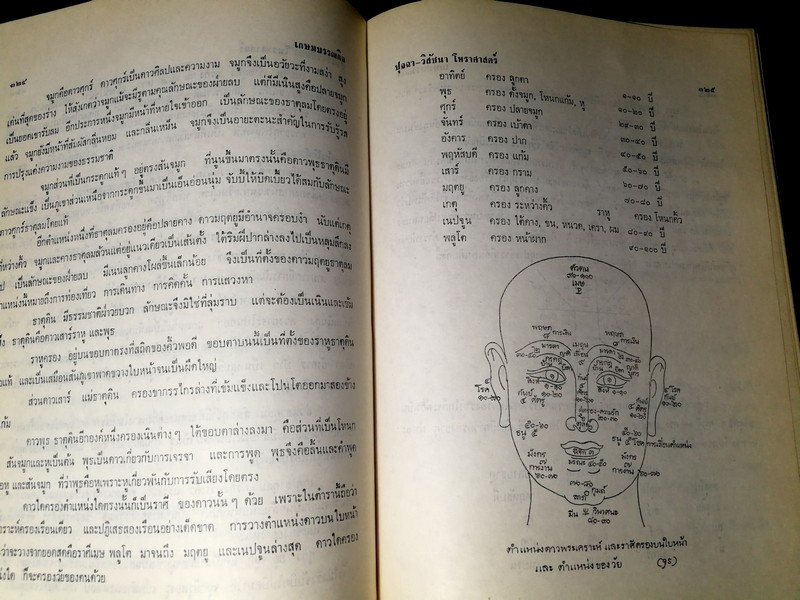 ๓๒๔
เกษมบรรณกิจ
จมูกคือดาวศุกร์ ดาวศุกร์เป็นดาวศิลปและความงาม จมูกจึงเป็นอวัยวะที่งามสง่า สูง
เด่นที่สุดของร่าง ให้สังเกตว่าจมูกแม้จะมีรูตามคุณลักษณะของฝ่ายลบ แต่ก็มีเนินสูงคือปลายจมูก
เป็นยอดเขารับลม อีกประการหนึ่งจมูกมีหน้าที่หายใจเข้าออก เป็นลักษณะของธาตุลมโดยตรงอยู่
แล้ว จมูกยังมีหน้าที่สัมผัสกลิ่นหอม และกลิ่นเหม็น จมูกจึงเป็นอายะตะนะสำคัญในการรับรู้รส
การปรุงแต่งความงามของธรรมชาติ
จมูกส่วนที่เป็นกระดูกแท้ๆ อยู่ตรงสันจมูก ที่นูนขึ้นมาตรงนั้นคือดาวพุธธาตุดินมี
ลักษณะแข็ง เป็นภูเขาส่วนเหนือจากกระดูกขึ้นมาเป็นเอ็นอ่อนนุ่ม จับบี้ให้บิดเบี้ยวได้สมกับลักษณะ
ดาวศุกร์ธาตุลมโดยแท้
อีกตำแหน่งหนึ่งที่ธาตุลมครองอยู่คือปลายคาง ดาวมฤตยูมีอำนาจครอบงำ นับแต่เกตุ
ที่หว่างคิ้ว จมูกและคางธาตุลมล้วนแต่อยู่แนวเดียวเป็นเส้นดิ่ง ใต้ริมฝีปากล่างลงไปเป็นหลุมลึกลง
ไป เป็นลักษณะของฝ่ายลบ มีเนนลูกคางโผล่ขึ้นเล็กน้อย จึงเป็นที่ตั้งของดาวมฤตยูธาตุลม
ตำแหน่งนี้หมายถึงการท่องเที่ยว การเดินทาง การคิดค้น การแสวงหา
ธาตุดิน มีธรรมชาติฝ่ายบวก ลักษณะจึงมิใช่ที่ลุ่มราบ แต่จะต้องเป็นเนินและเข้ม
แข็ง ธาตุดินคือดาวเสาร์ราหู และพุธ
ราหูครอง อยู่บนขอบตาตรงที่สถิตของคิ้วพอดี ขอบตาบนนี้เป็นที่ตั้งของราหูธาตุดิน
แท้ และเป็นเสมือนสันภูเขาพาดขวางใบหน้าจนเป็นผืดใหญ่
ส่วนดาวเสาร์ แม่ธาตุดิน ครองขากรรไกรล่างที่เข้มแข็งและโปนโตออกมาสองข้าง
แก้ม
ดาวพุธ ธาตุดินอีกองค์หนึ่งครองเนินต่างๆ ใต้ขอบตาล่างลงมา คือส่วนที่เป็นโหนก
สันจมูกและหูเป็นต้น พุธเป็นดาวเกี่ยวกับการเจรจา และการพูด พุธจึงคือลิ้นและคำพูด
คือหู และสันจมูก ที่ว่าพุธคือหูเพราะหูเกี่ยวพันกับการรับเสียงโดยตรง
ดาวใดครองตำแหน่งใดตรงนั้นก็เป็นราศี ของดาวนั้นๆ ด้วย เพราะในตำรานี้ถือว่า
เคราะห์ครองเรือนเดียว และปฏิเสธสองเรือนอย่างเด็ดขาด การวางตำแหน่งดาวบนใบหน้า
ว่าจะวางจากยอดสุดคือราศีเมษ พลูโต มาจนถึง มฤตยู และเนปจูนล่างสุด ดาวใดครอง
แหน่งใด ก็จะครองวัยของตนด้วย
ปุจฉา-วิสัชนา โหราศาสตร์
๓๒๕
อาทิตย์ ครอง ลูกตา ๑-๑๐ ปี
พุธ ครอง ดั้งจมูก, โหนกแก้ม, หู ๑๐-๒๐ ปี
ศุกร์ ครอง ปลายจมูก ๒๐-๓๐ ปี
จันทร์ ครอง เบ้าตา
อังคาร ครอง ปาก ๓๐-๔๐ ปี
พฤหัสบดี ครอง แก้ม ๔๐-๕๐ ปี
เสาร์ ครอง กราม ๕๐-๖๐ ปี
มฤตยู ครอง ลูกคาง
เกตุ ครอง ระหว่างคิ้ว ราหู ครอง โหนกคิ้ว
เนปจูน ครอง ใต้คาง, ขน, หนวด, เครา, ผม ๘๐-๙๐ ปี
พลูโต ครอง หน้าผาก ๙๐-๑๐๐ ปี
ตัวตน
๙๐-๑๐๐
เมษ
P
การเงิน
มารดา
ญาติ
๑-๑๐
โชค
๑๐-๒๐
ศัตรู
๕๐-๖๐
ธนู ๕
มังกร
๗
การงาน
พิจิก ๓
มรณะ ๔๐-๕๐
กุมภ์
มีน
๘๐-๙๐
ตำแหน่งดาวพระเคราะห์ และราศีครองบนใบหน้า
และ ตำแหน่งของวัย (๑๘)